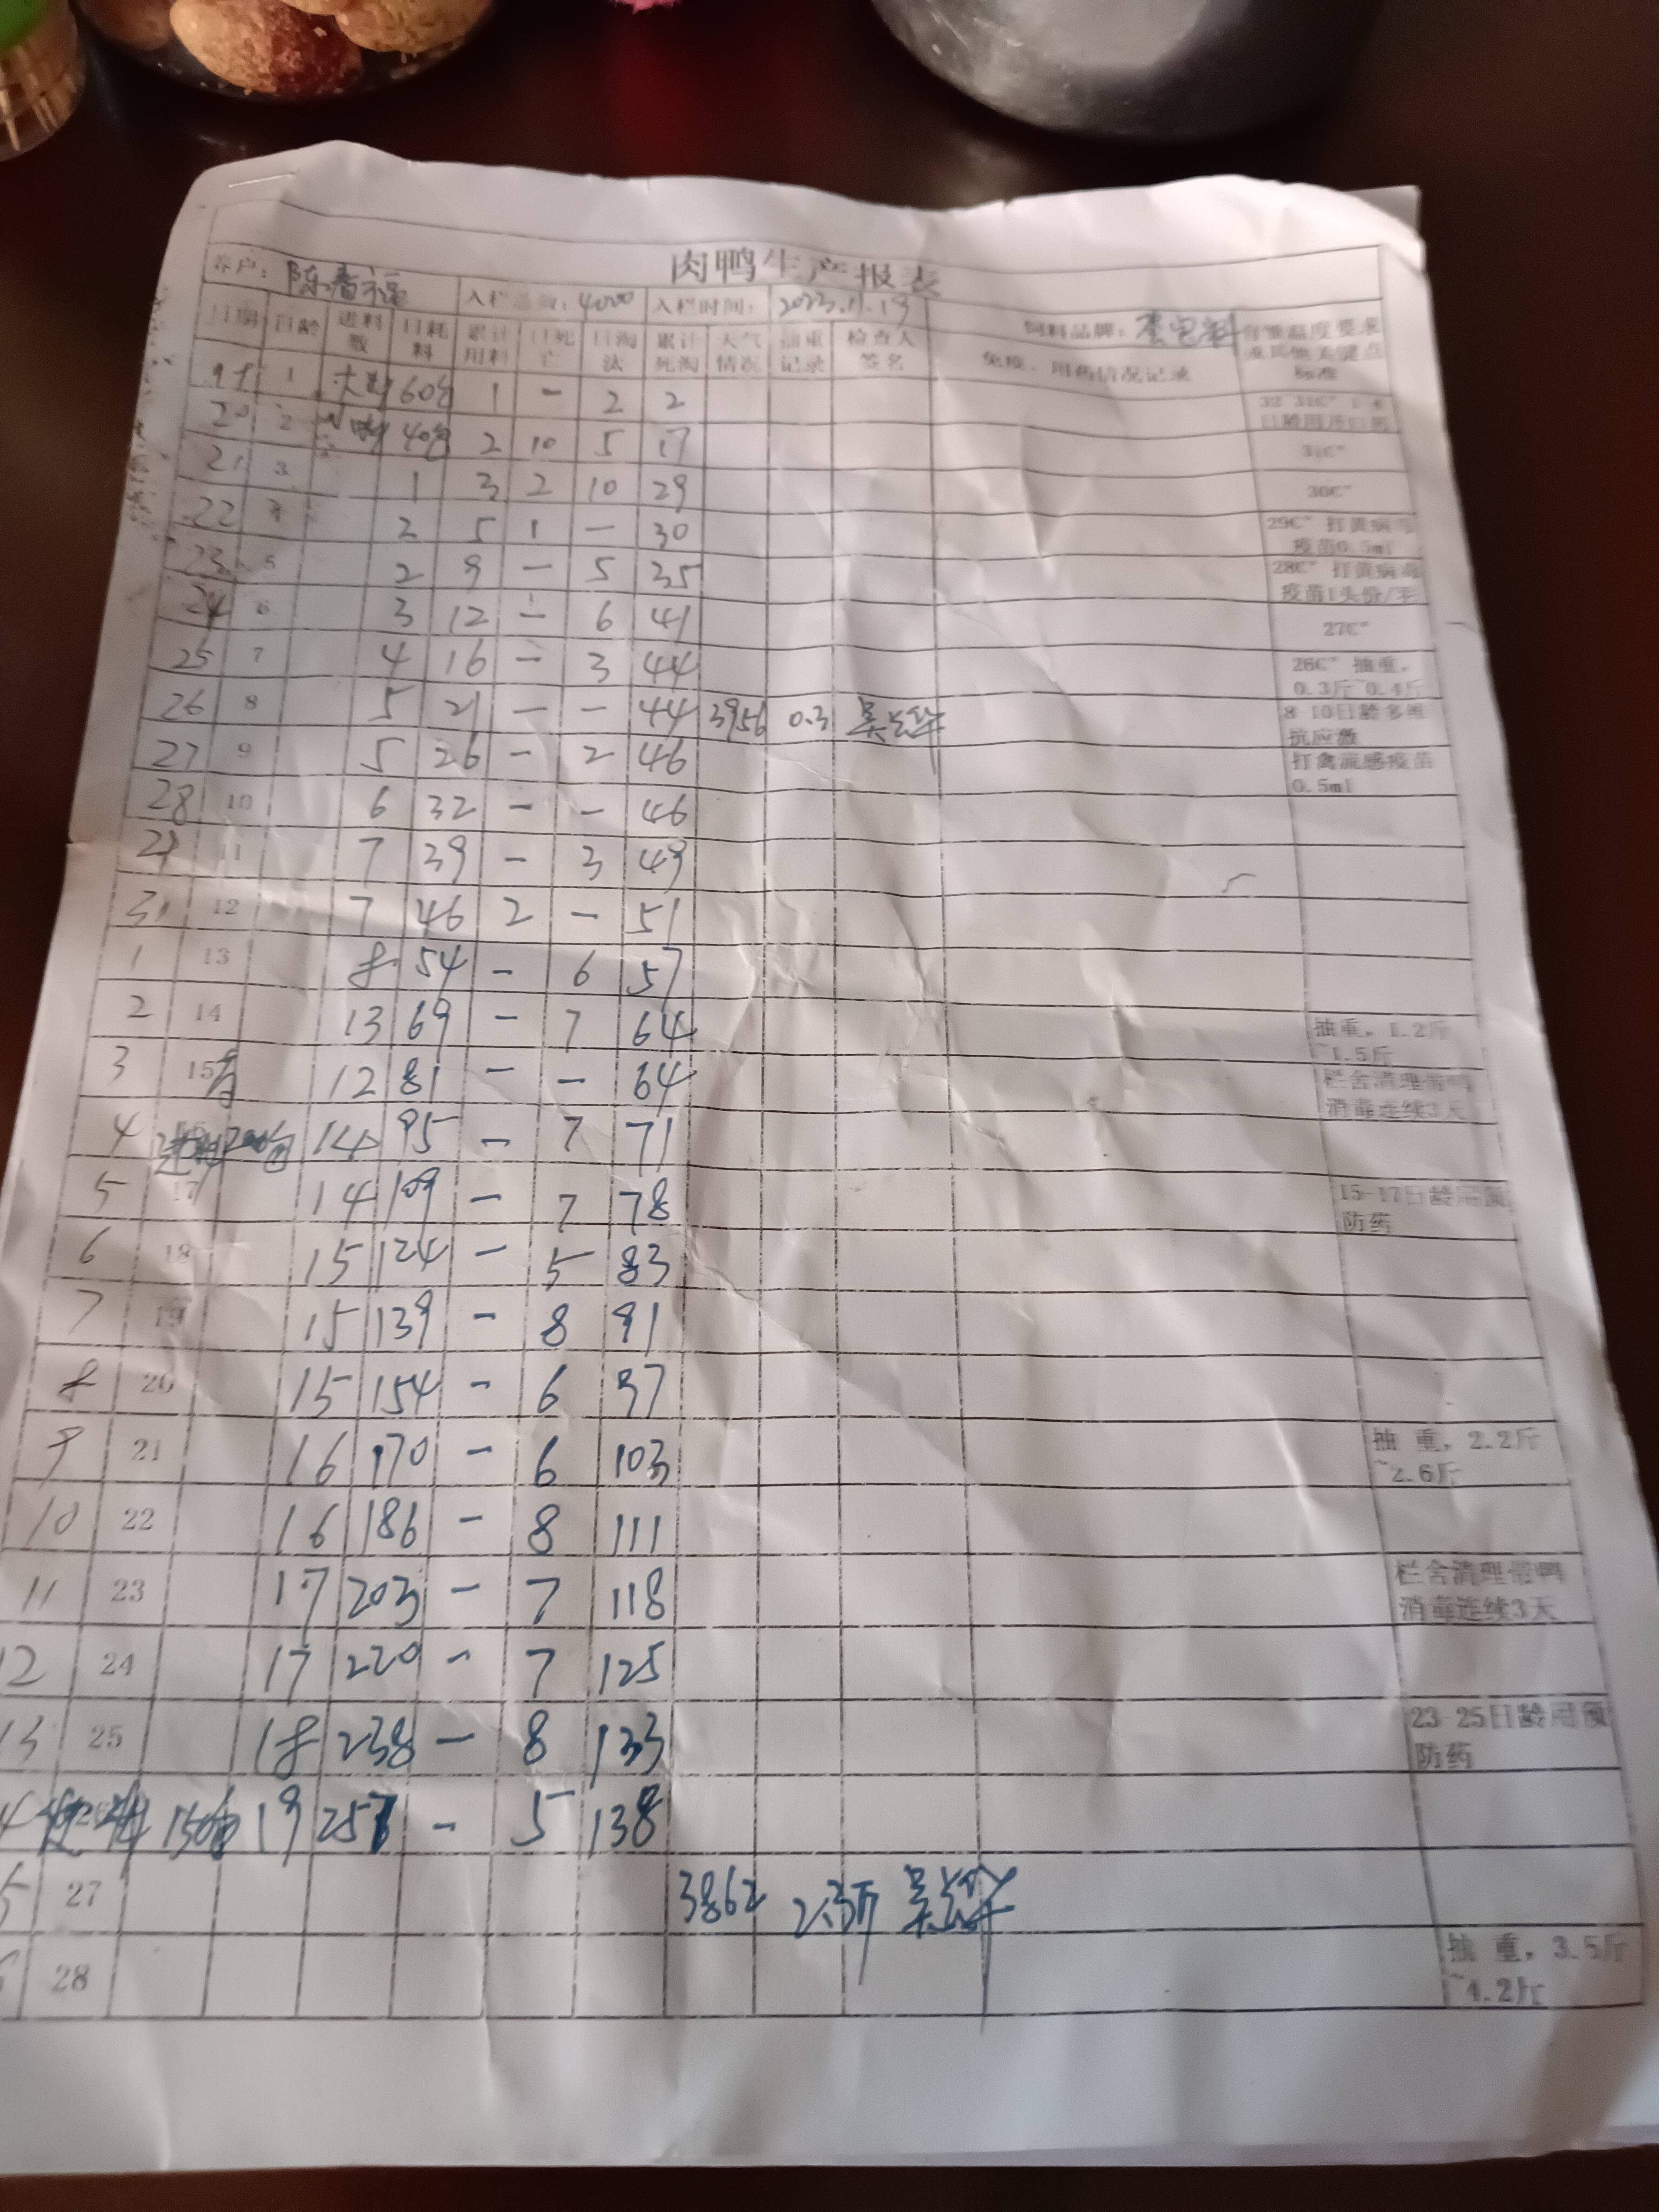 肉鸭生产报表
养户：陈春福 入栏总数：4000 入栏时间：2023.11.19 饲料品牌：
日期 日龄 进料数 日耗料 累计用料 日死亡 日淘汰 累计死淘 天气情况 抽重记录 检查人签名 免疫、用药情况记录 育雏温度要求及其他关键点标准
1 60包 1 - 2 2 32-31C° 1-4日龄用开口药
20 2 40包 2 10 5 17 31C°
21 3 1 3 2 10 29 30C°
22 4 2 5 1 - 30 29C° 打黄病毒疫苗0.5ml
23 5 2 9 - 5 35 28C° 打黄病毒疫苗1头份/羽
24 6 3 12 - 6 41 27C°
25 7 4 16 - 3 44 26C° 抽重，0.3斤~0.4斤
26 8 5 21 - - 44 3956 0.3 8-10日龄多维抗应激
27 9 5 26 - 2 46 打禽流感疫苗0.5ml
28 10 6 32 - - 46
29 11 7 39 - 3 49
31 12 7 46 2 - 51
1 13 8 54 - 6 57
2 14 13 69 - 7 64 抽重，1.2斤~1.5斤
3 15 12 81 - - 64 栏舍清理带鸭消毒连续3天
4 14 95 - 7 71
5 17 14 109 - 7 78 15-17日龄用预防药
6 18 15 124 - 5 83
7 19 15 139 - 8 91
8 20 15 154 - 6 97
9 21 16 170 - 6 103 抽 重，2.2斤~2.6斤
10 22 16 186 - 8 111
11 23 17 203 - 7 118 栏舍清理带鸭消毒连续3天
12 24 17 220 - 7 125
13 25 18 238 - 8 133 23-25日龄用预防药
4 150包 19 257 - 5 138
5 27 3862 2.3斤
6 28 抽 重，3.5斤~4.2斤